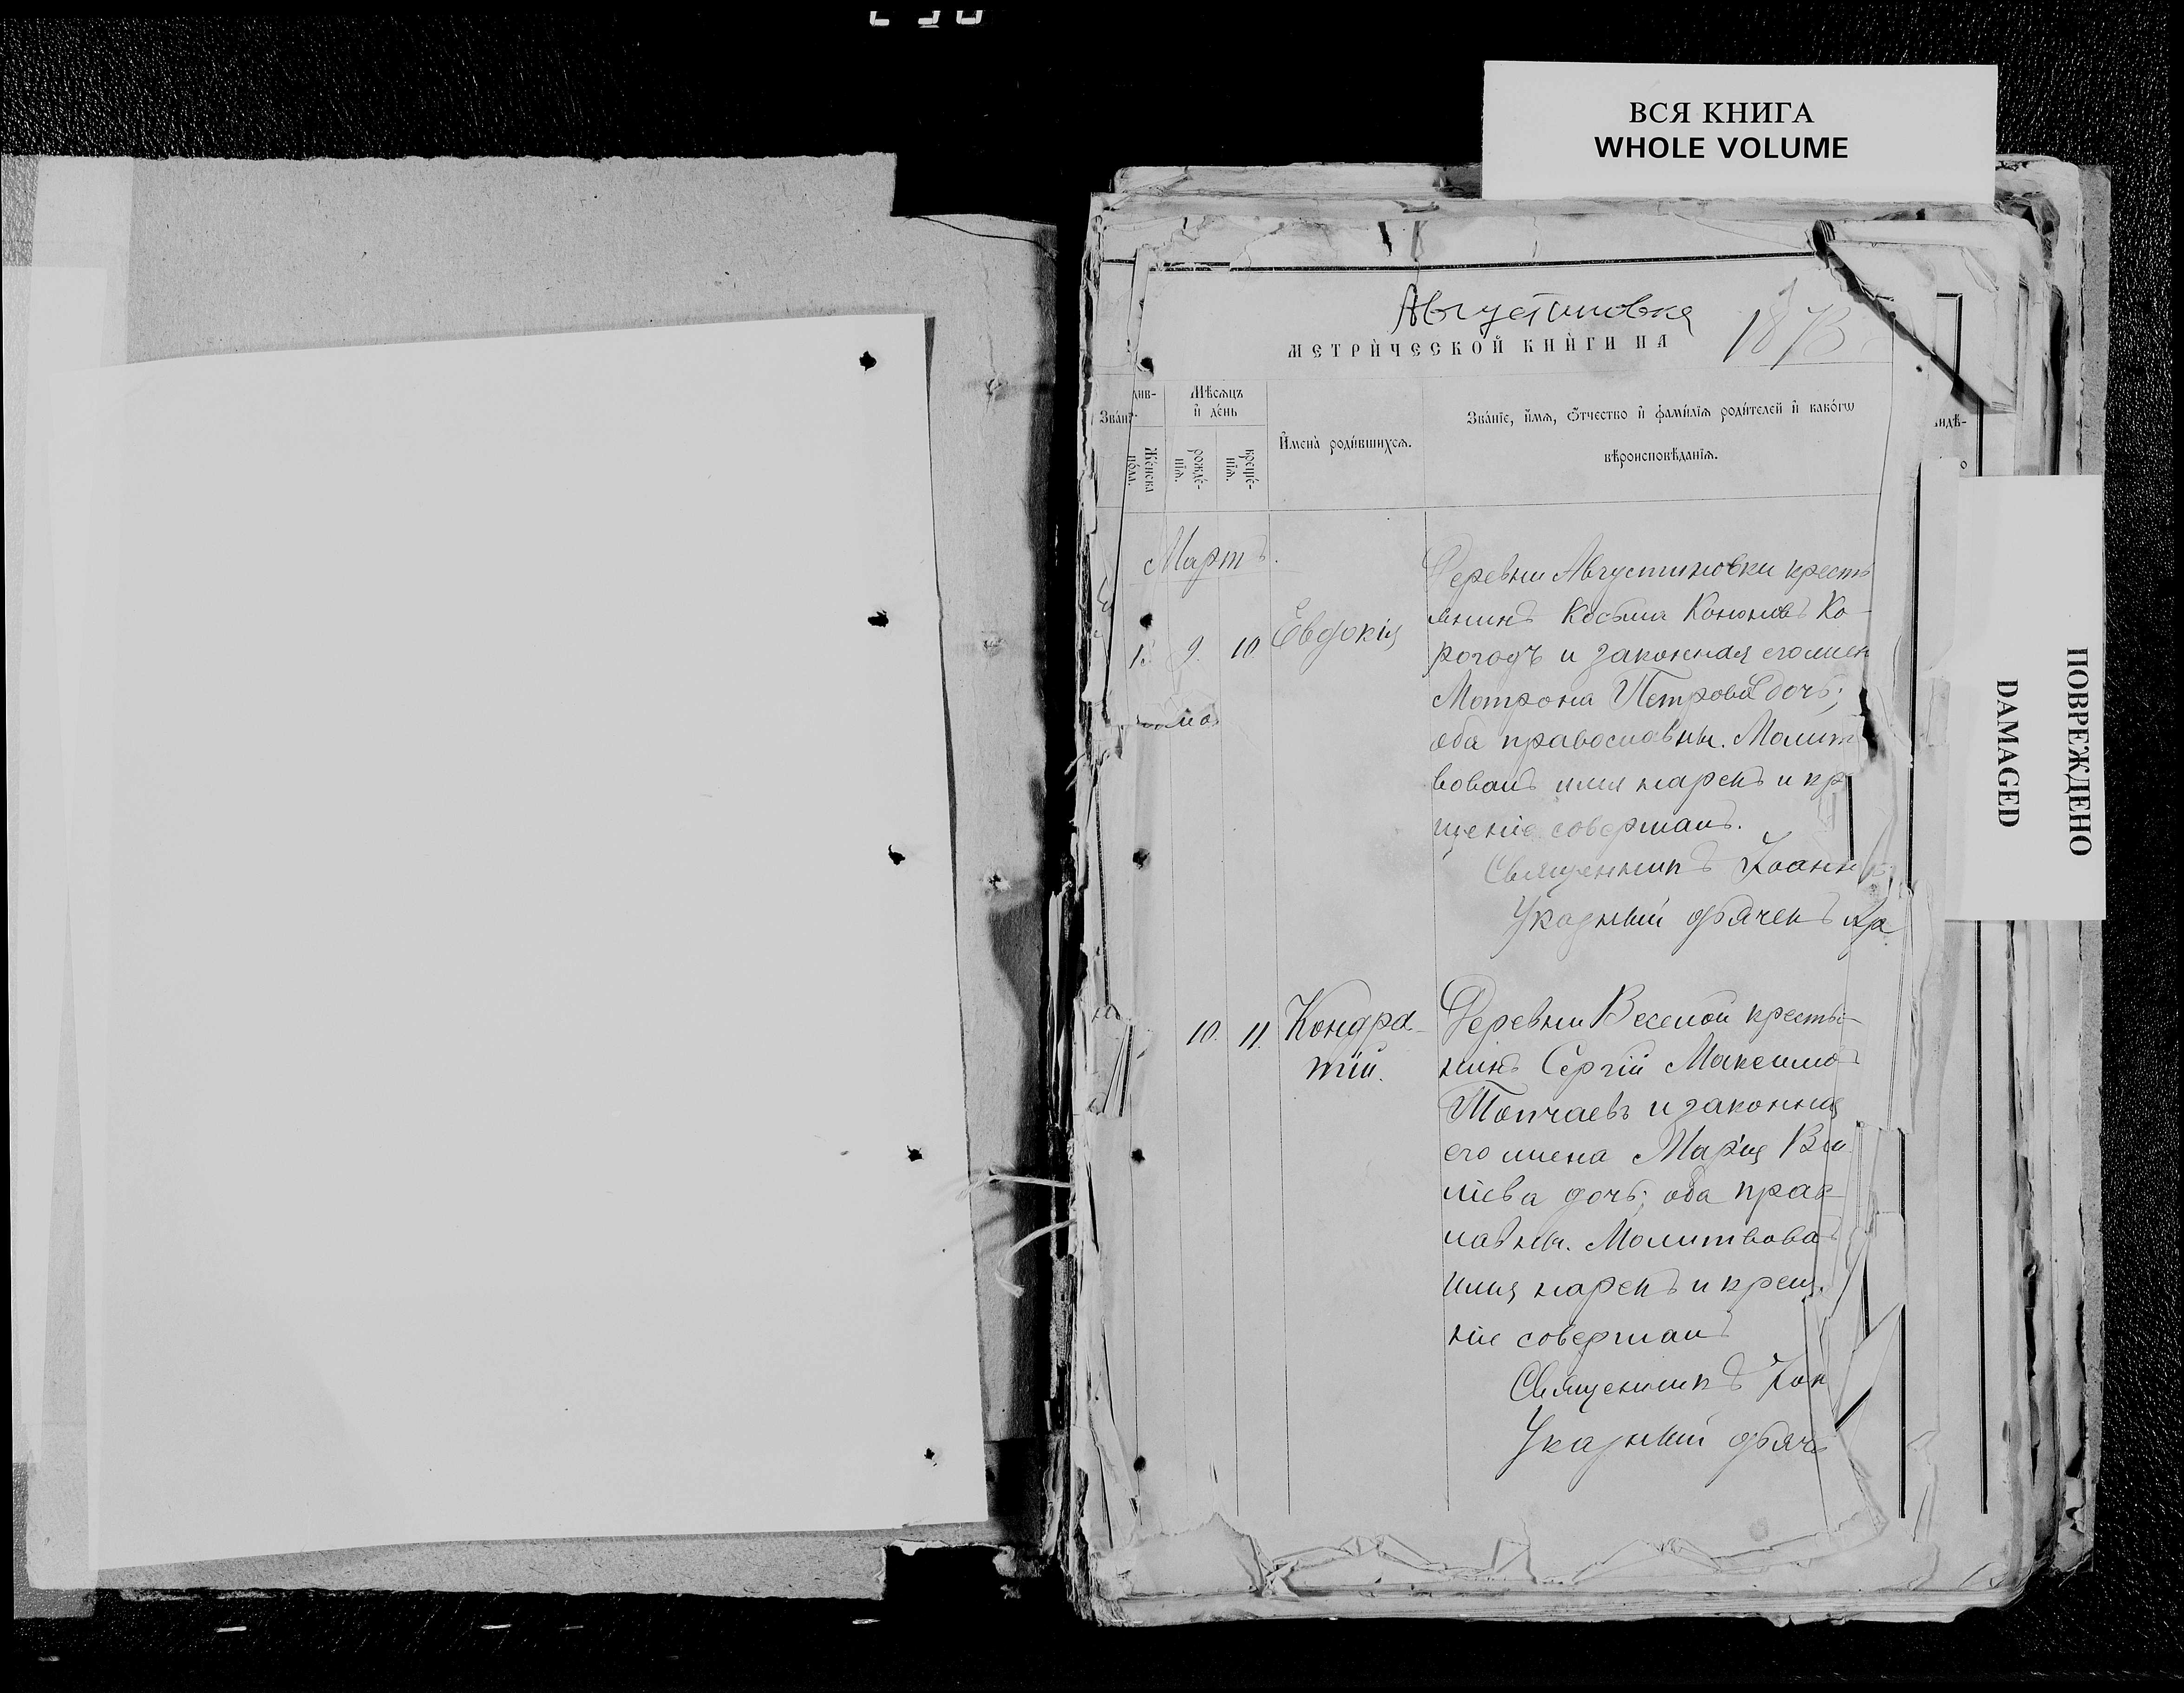 ВСЯ КНИГА
WHOLE VOLUME
Августиновка
МЕТРИ́ЧЕСКОЙ КНИ́ГИ НА 1873
Зва́ні
Мѣсяцъ
и҆ де́нь
Же́нска по́ла.
рожде́-
нія.
креще́-
нія.
И҆мена̀ роди́вшихся.
Зва́ніе, и҆́мя, ѻ҆́тчество и҆ фами́лія роди́телей и҆ како́гѡ
вѣроисповѣ́данія.
ПОВРЕЖДЕНО
DAMAGED
Мартъ.
9. 10 Евдокія
Деревни Августиновки кресть
янинъ Косьма Кононовъ Ко-
рогодъ и законная его жен
Мотрона Петрова дочь;
оба православны. Молит
вовалъ имя нарекъ и кр
щеніе совершалъ.
Священникъ Іоанн
Указный дьячекъ Кр
10. 11. Кондра-
тій.
Деревни Веселой крестья-
нинъ Сергій Максимов
Топчаевъ и законная
его жена Марія Ва
ліева дочь; оба прав
лавны. Молитвова
имя нарекъ и крещ
ніе совершалъ
Священникъ Іоан
Указный дьяч